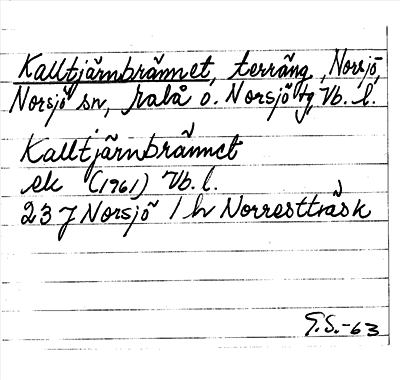 Kalltjärnbrännet, terräng, Norsjö,
Norsjö sn, Malå o. Norsjö tg, Vb. l.
Kalltjärnbrännet
ek (1961) Vb. l.
23 J Norsjö 1 h Norrestträsk
G.S.-63